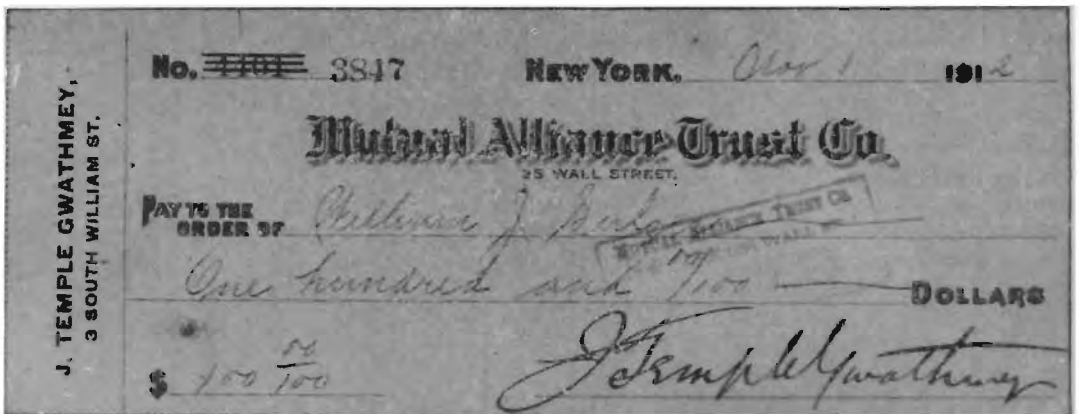 J. TEMPLE GWATHMEY,
3 SOUTH WILLIAM ST.
No. 3847 NEW YORK, Nov 1 1912
Mutual Alliance Trust Co.
25 WALL STREET.
PAY TO THE
ORDER OF J.
MUTUAL ALLIANCE TRUST CO
WALL
One hundred and 00/100 DOLLARS
$ 100 00/100
J Temple Gwathmey